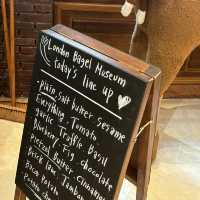 London Bagel Museum
today's line up
Plain Salt butter Sesame
Everything, Tomato
garlic Truffle Basil
blueberry Fig chocolate
Pretzel Butter Cinnamon
Brick lane, Jambon
Bacon Potato
Potato chee